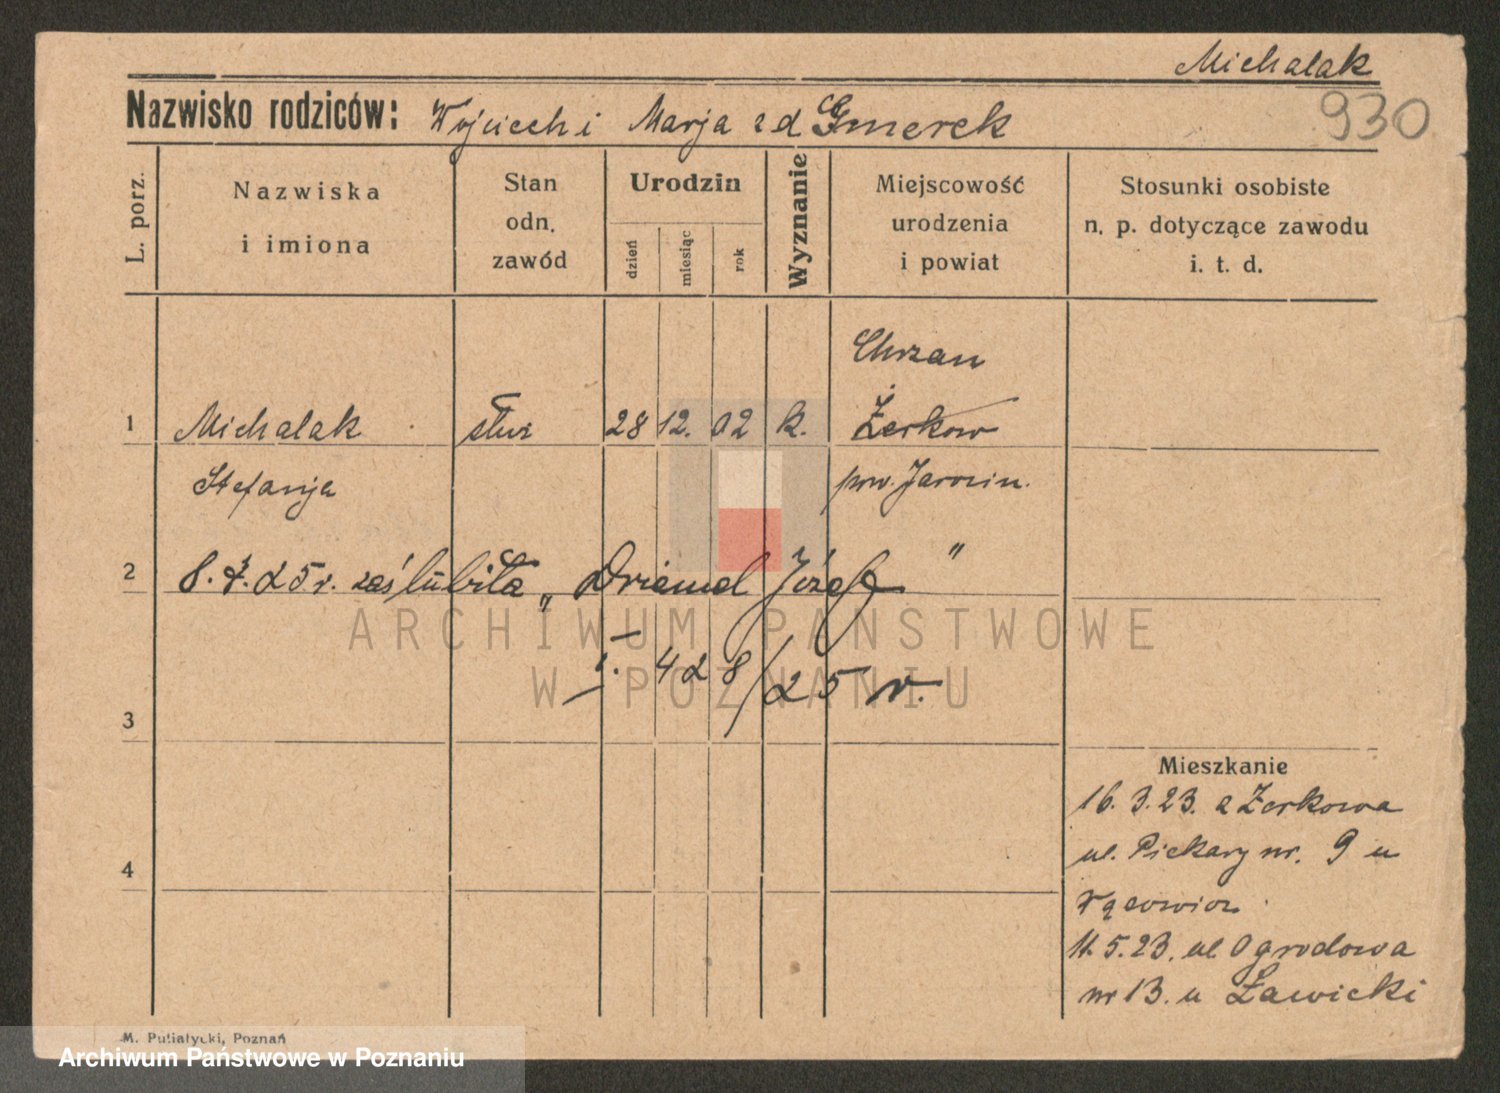 Michalak
930
Nazwisko rodziców: Wojciech i Marja z d Gmerek
L. porz.
Nazwiska
i imiona
Stan
odn.
zawód
Urodzin
dzień
miesiąc
rok
Wyznanie
Miejscowość
urodzenia
i powiat
Stosunki osobiste
n. p. dotyczące zawodu
i. t. d.
Chrzan
1 Michalak służ 28 12. 02 k. Żerkow
Stefanja pow. Jarocin.
2 8. 7. 25 r. zaślubiła „Driemel Józef"
428/25 r.
3
Mieszkanie
16. 3. 23. z Żerkowa
ul. Piekary nr. 9 u
4
11. 5. 23. ul Ogrodowa
nr 13. u Ławicki
M. Putiatycki, Poznań
ARCHIWUM PAŃSTWOWE
W POZNANIU
Archiwum Państwowe w Poznaniu